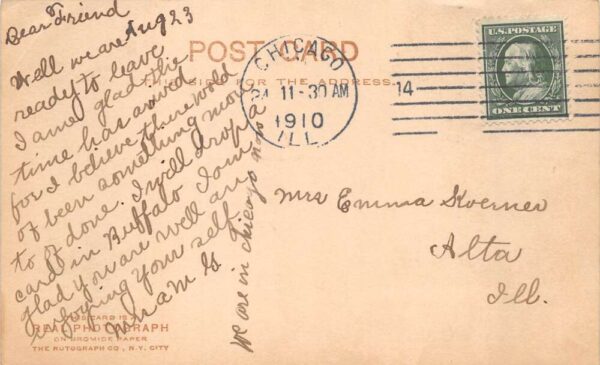 Dear Friend
Aug 23
Well we are
ready to leave
I am glad the
time has arived
for I believe there wold
of been something more
to of done. I will drop a
card in Buffalo I am
glad you are well an
injoying your self
We are in Chicago now
POST CARD
THE SIDE FOR THE ADDRESS
CHICAGO
11-30 AM
1910
ILL.
14
U.S. POSTAGE
ONE CENT
Mrs Emma Koerner
Alta
Ill.
THIS CARD IS A
REAL PHOTOGRAPH
ON BROMIDE PAPER
THE ROTOGRAPH CO., N.Y. CITY